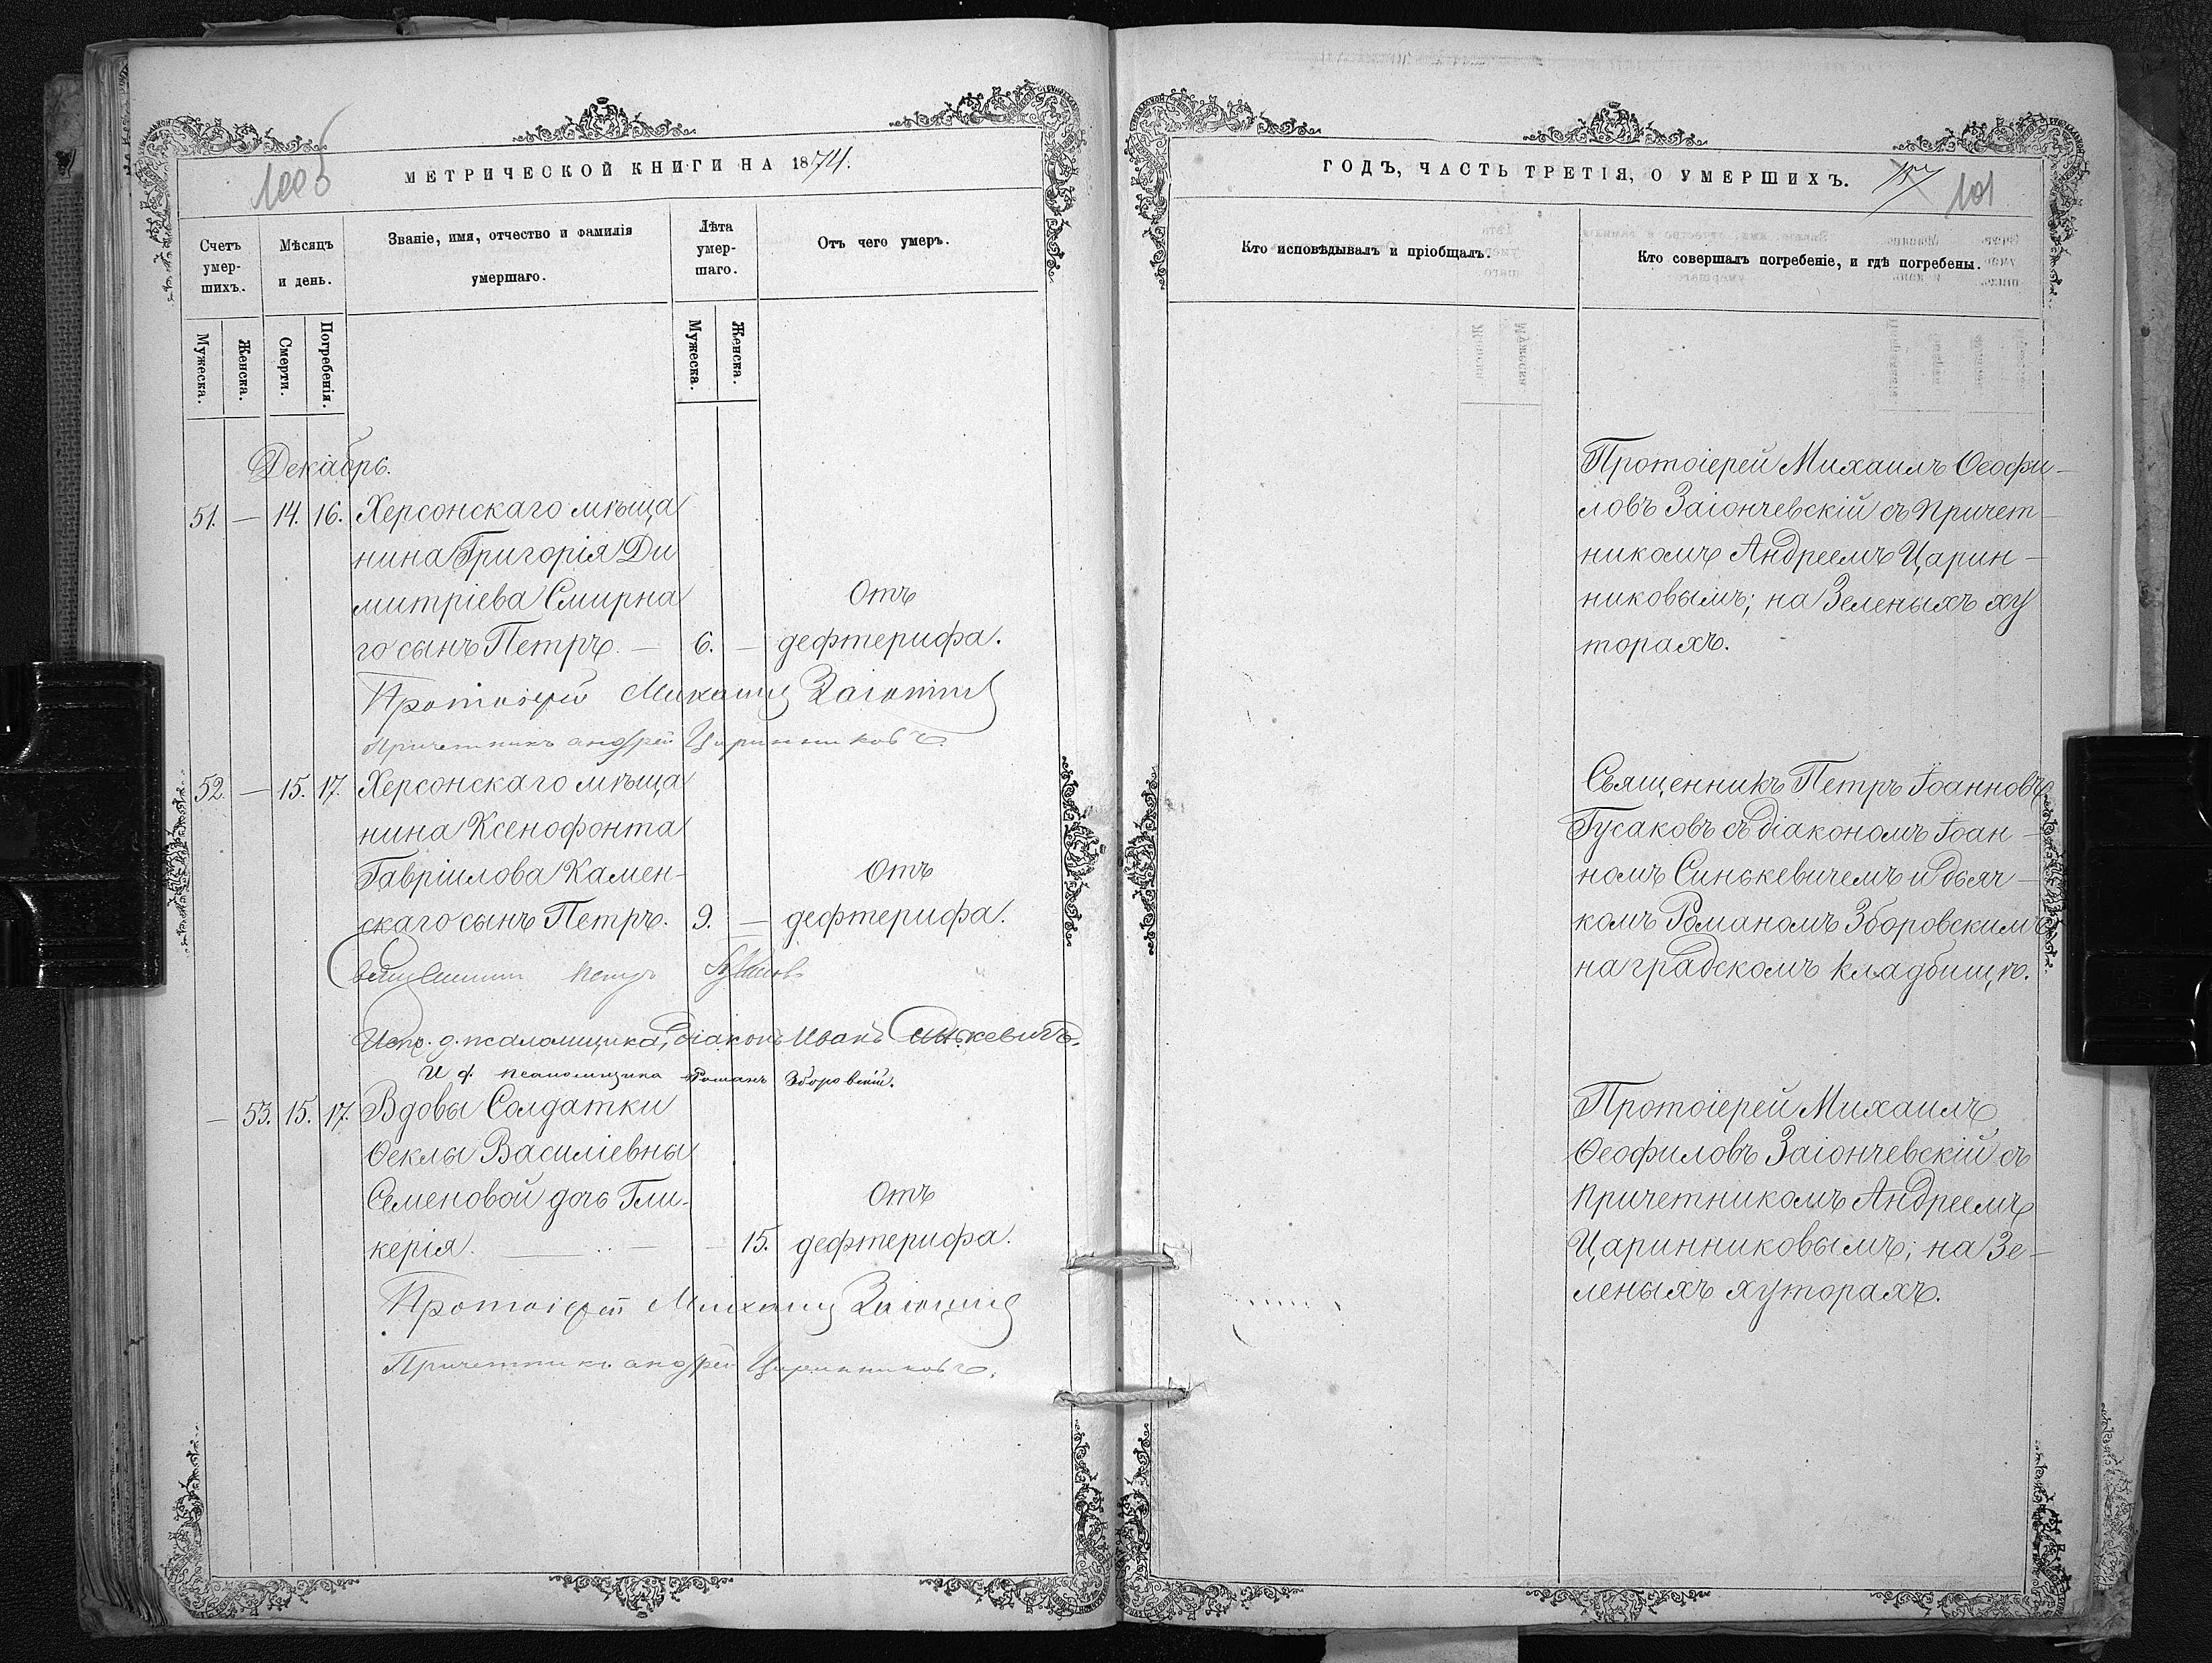 1005
МЕТРИЧЕСКОЙ КНИГИ НА 1874.
Счетъ умер-шихъ.
Мѣсяцъ и день.
Званіе, имя, отчество и фамилія умершаго.
Лѣта умер-шаго.
Отъ чего умеръ.
Мужеска.
Женска.
Смерти.
Погребенія.
Мужеска.
Женска.
Декабрь.
51. — 14. 16. Херсонскаго мѣща
нина Григорія Ди
митріева Смирна Отъ
го сынъ Петръ. — 6. — дефтерифа.
Протоіерей Михаилъ
Причетникъ Андрей Царинниковъ.
52. — 15. 17. Херсонскаго мѣща
нина Ксенофонта
Гавріилова Камен- Отъ
скаго сынъ Петръ. 9. — дефтерифа.
Священникъ Петръ Гусаковъ
Испр. д. псаломщика, діаконъ Иванъ Синькевичъ.
И д. псаломщика Романъ Зборовскій.
— 53. 15. 17. Вдовы Солдатки
Ѳеклы Василіевны
Семеновой дочь Гли- Отъ
керія. — — 15. дефтерифа.
Протоіерей Михаилъ
Причетникъ Андрей Царинниковъ.
ГОДЪ, ЧАСТЬ ТРЕТІЯ, О УМЕРШИХЪ.
101
Кто исповѣдывалъ и пріобщалъ.
Кто совершалъ погребеніе, и гдѣ погребены.
Протоіерей Михаилъ Ѳеофи-
ловъ Заіончевскій съ Причет-
никомъ Андреемъ Царин-
никовымъ; на Зеленыхъ ху
торахъ.
Священникъ Петръ Іоанновъ
Гусаковъ съ діакономъ Іоан-
номъ Синькевичемъ и дьяч-
комъ Романомъ Зборовскимъ
на градскомъ кладбищѣ.
Протоіерей Михаилъ
Ѳеофиловъ Заіончевскій съ
причетникомъ Андреемъ
Царинниковымъ; на Зе-
леныхъ хуторахъ.